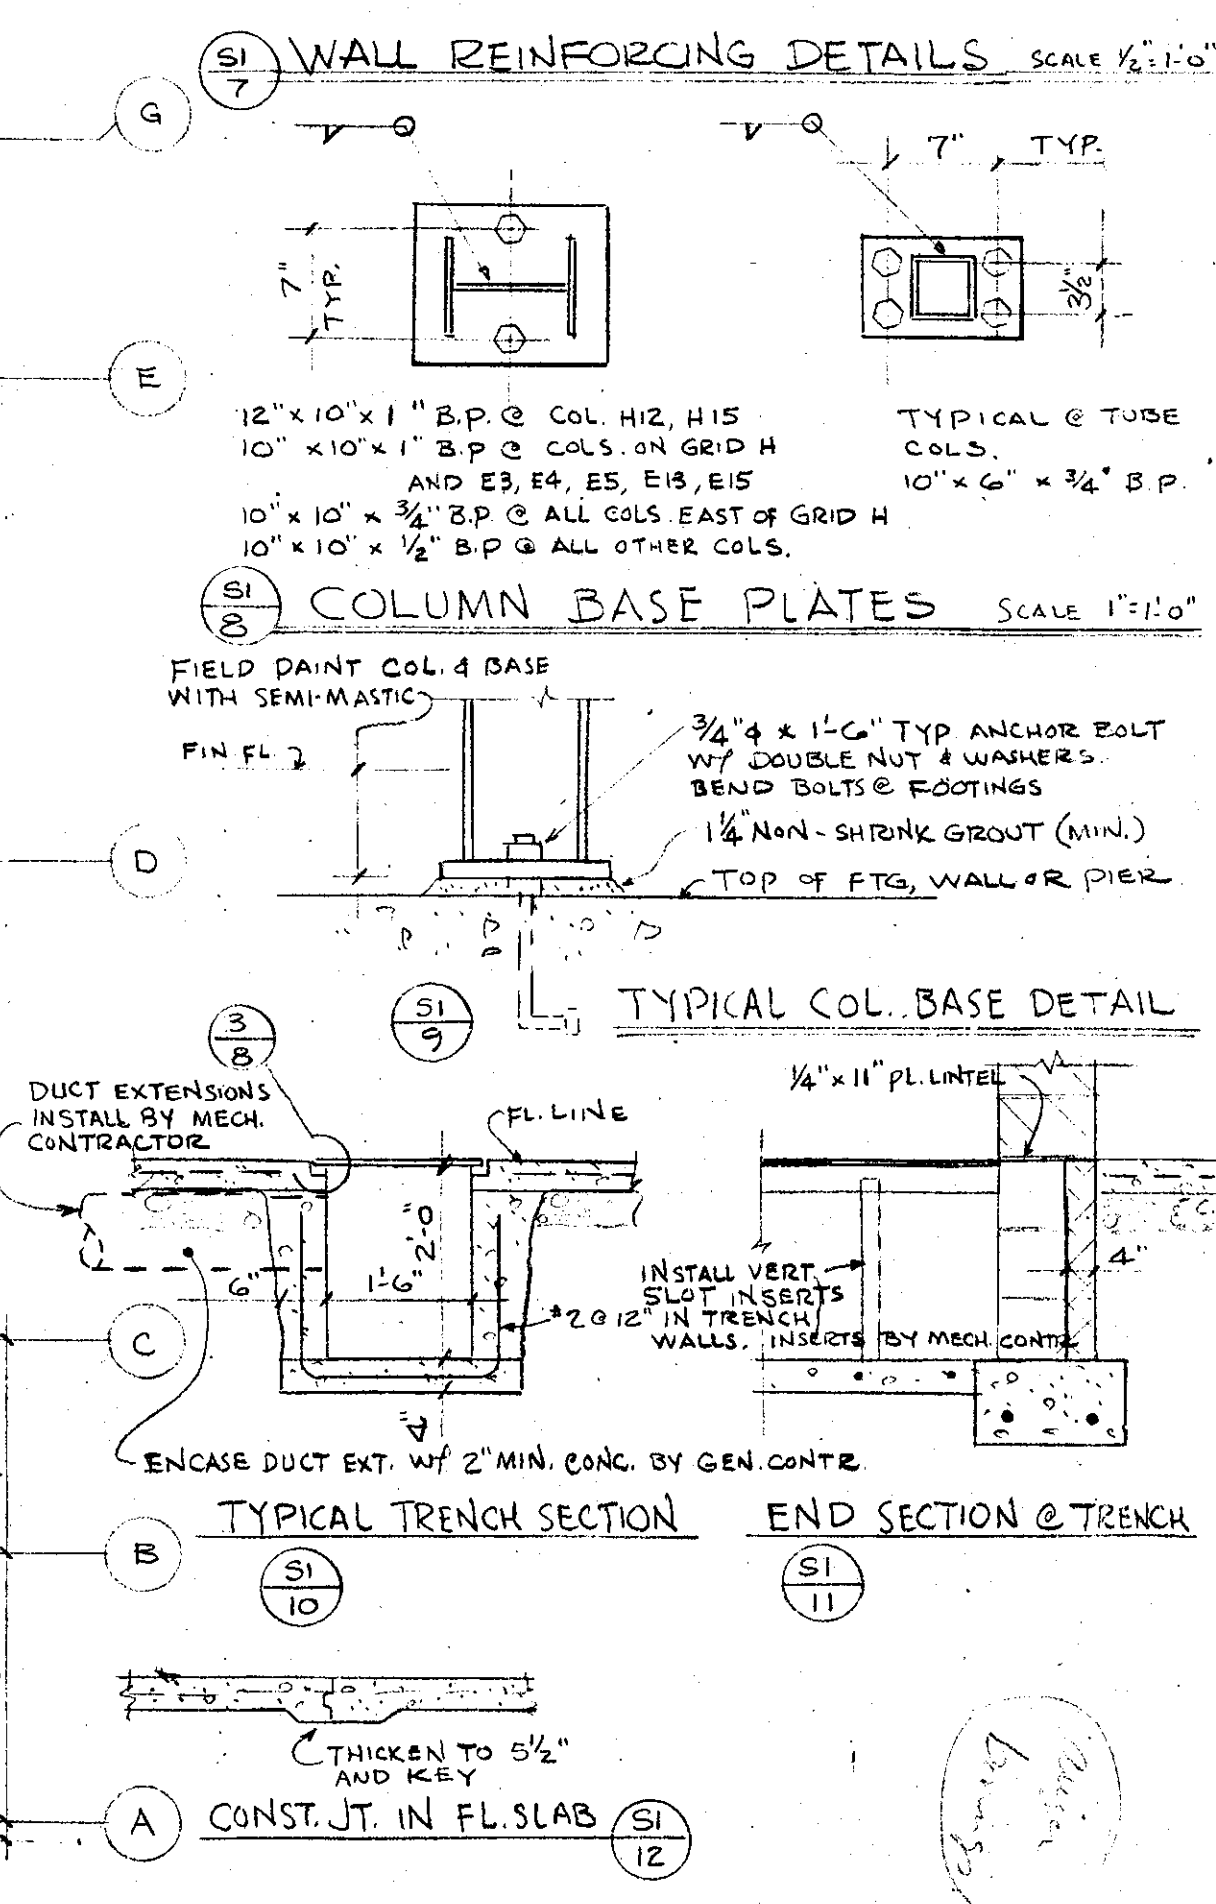 S1
7
WALL REINFORCING DETAILS SCALE 1/2"=1'-0"
G
7" TYP.
7" TYP.
3 1/2"
E
12" x 10" x 1" B.P. @ COL. H12, H15
10" x 10" x 1" B.P @ COLS. ON GRID H
AND E3, E4, E5, E13, E15
10" x 10" x 3/4" B.P. @ ALL COLS. EAST OF GRID H
10" x 10" x 1/2" B.P @ ALL OTHER COLS.
TYPICAL @ TUBE
COLS.
10" x 6" x 3/4" B.P.
S1
8
COLUMN BASE PLATES SCALE 1"=1'-0"
FIELD PAINT COL. & BASE
WITH SEMI-MASTIC
FIN. FL.
3/4"ϕ x 1'-6" TYP ANCHOR BOLT
W/ DOUBLE NUT & WASHERS.
BEND BOLTS @ FOOTINGS
1 1/4" NON-SHRINK GROUT (MIN.)
TOP OF FTG, WALL OR PIER
D
S1
9
TYPICAL COL. BASE DETAIL
3
8
DUCT EXTENSIONS
INSTALL BY MECH.
CONTRACTOR
FL. LINE
1/4" x 11" PL. LINTEL
2'-0"
6"
1'-6"
4"
#2 @ 12" IN TRENCH
WALLS.
INSTALL VERT.
SLOT INSERTS
INSERTS BY MECH. CONTR.
C
ENCASE DUCT EXT. W/ 2" MIN. CONC. BY GEN. CONTR.
TYPICAL TRENCH SECTION
S1
10
END SECTION @ TRENCH
S1
11
B
THICKEN TO 5 1/2"
AND KEY
A
CONST. JT. IN FL. SLAB
S1
12